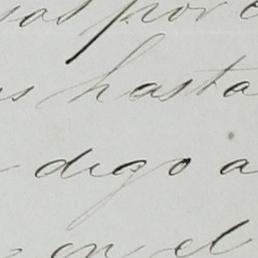 por
hasta
digo a
en el